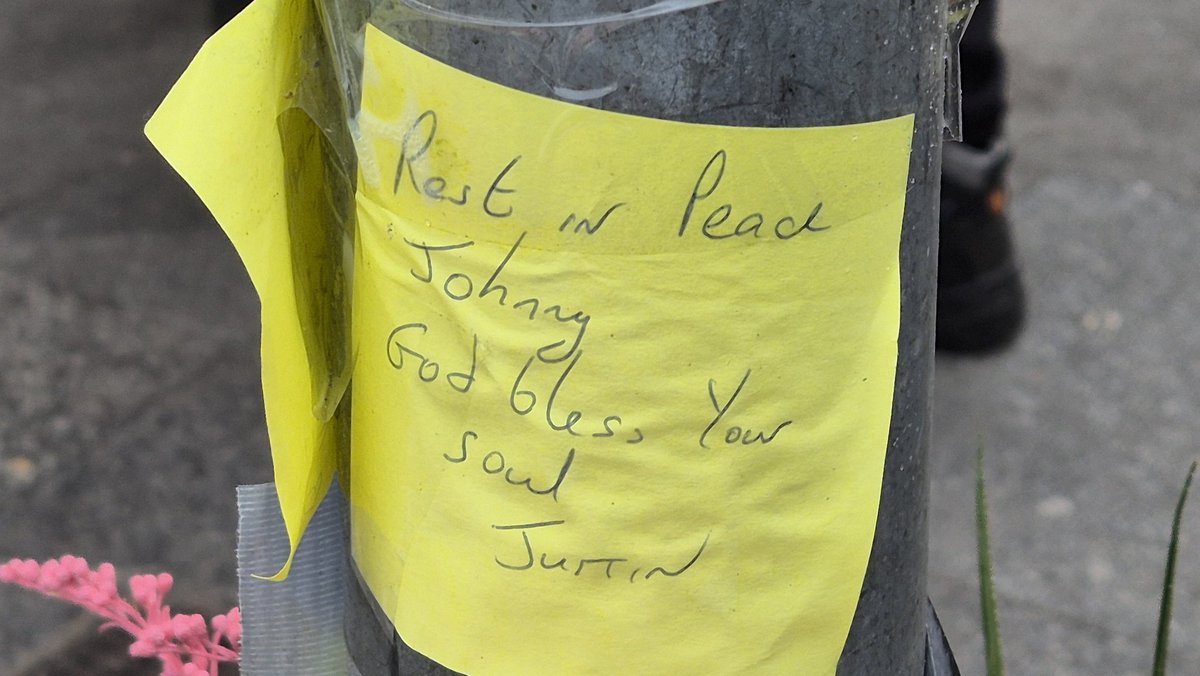 Rest in Peace
Johnny
God bless Your
soul
Justin